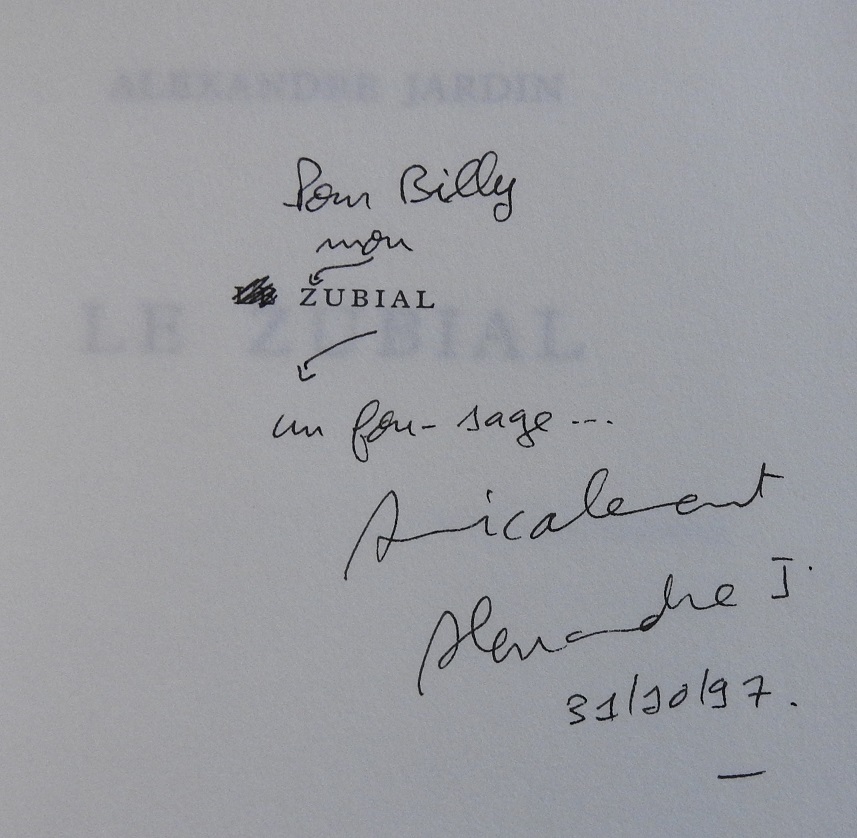 ALEXANDRE JARDIN
Pour Billy
mon
ZUBIAL
LE ZUBIAL
un fou-sage ...
Amicalement
Alexandre J.
31/10/97.